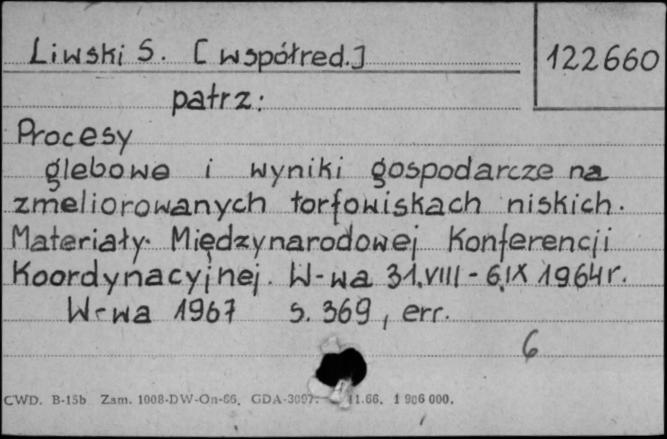 Liwski S. [współred.]
122660
patrz:
Procesy
glebowe i wyniki gospodarcze na
zmeliorowanych torfowiskach niskich.
Materiały. Międzynarodowej Konferencji
Koordynacyjnej. W-wa 31.VIII-6.IX 1964r.
W-wa 1967 s. 369, err.
6
CWD. B-15b Zam. 1008-DW-On-66. 11.66. 1 906 000.